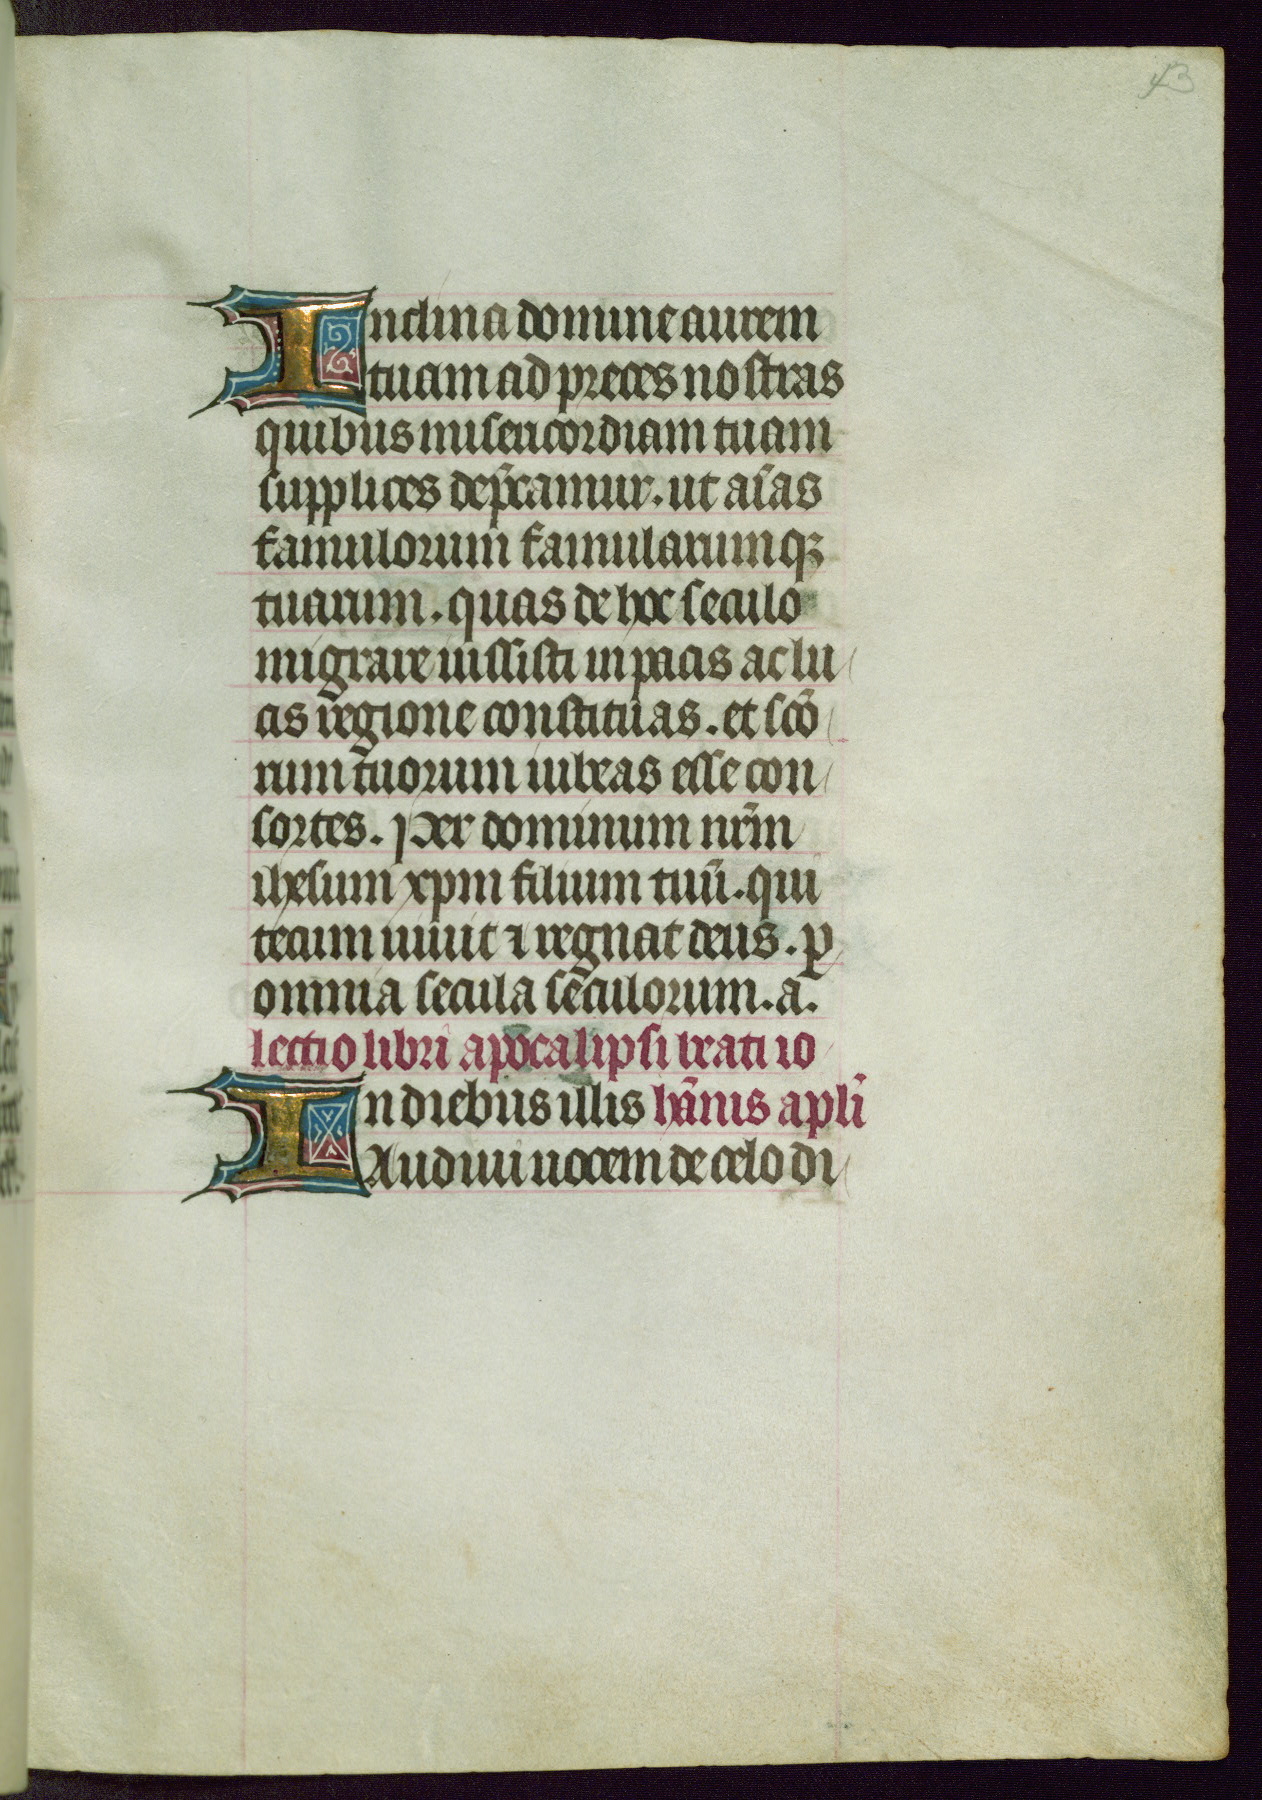 43
Inclina domine aurem
tuam ad preces nostras
quibus misericordiam tuam
supplices dep̄camur. ut aīas
famulorum famularumqꝫ
tuarum. quas de hoc seculo
migrare iussisti in pacis ac lu
cis regione constituas. et scō
rum tuorum iubeas esse con
sortes. Per dominum nr̄m
ihesum xpm filium tuū. qui
tecum uiuit ⁊ regnat deus. ꝑ
omnia secula seculorum. a.
lectio libri apocalipsi beati io
In diebus illis hānis apl̄i
Audiui uocem de celo di